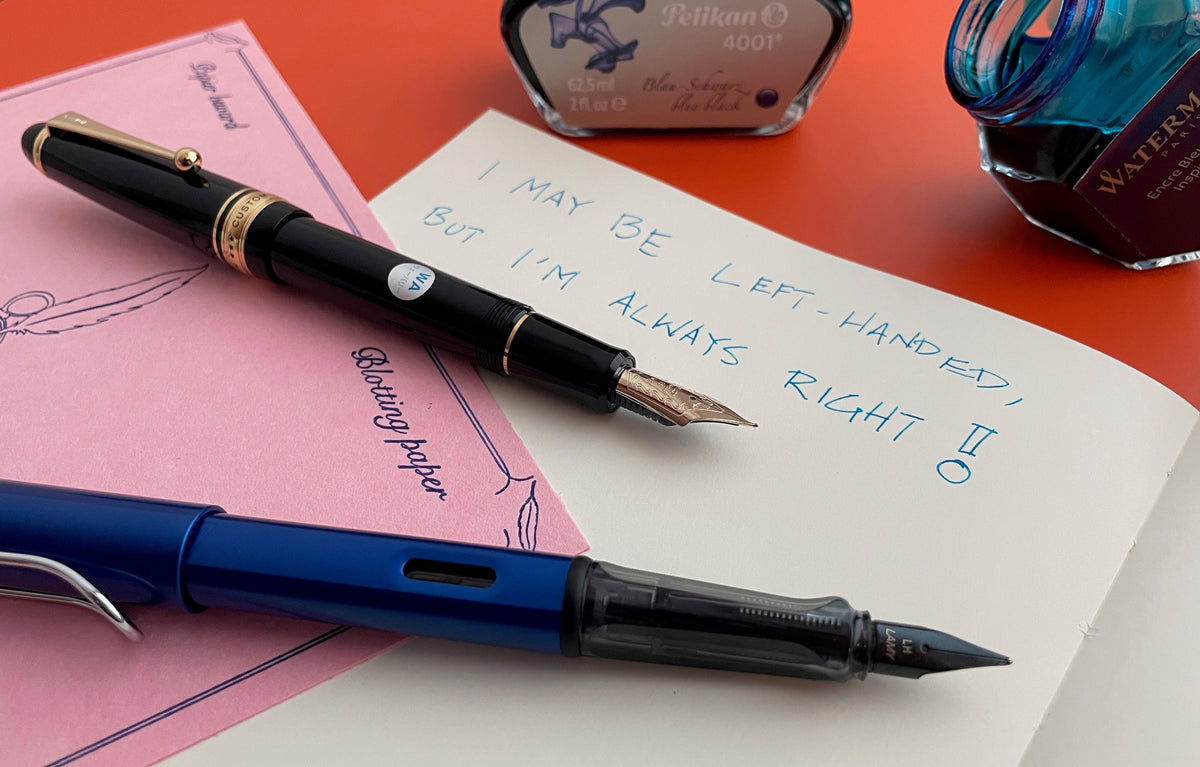 Pelikan
4001®
62,5 ml
2 fl oz e
Blau-Schwarz
blue black
WATERM
PAR
Encre Ble
Inspi
Paper
I MAY BE LEFT-HANDED,
BUT I'M ALWAYS RIGHT!!
CUSTO
WA
Blotting paper
LH
LAMY